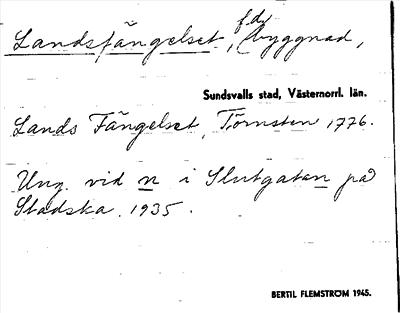 Landsfängelset, f.d. byggnad,
Sundsvalls stad, Västernorrl. län.
Lands Fängelset, Törnsten 1776.
Ung. vid n i Slutgatan på
Stadska. 1935.
BERTIL FLEMSTRÖM 1945.